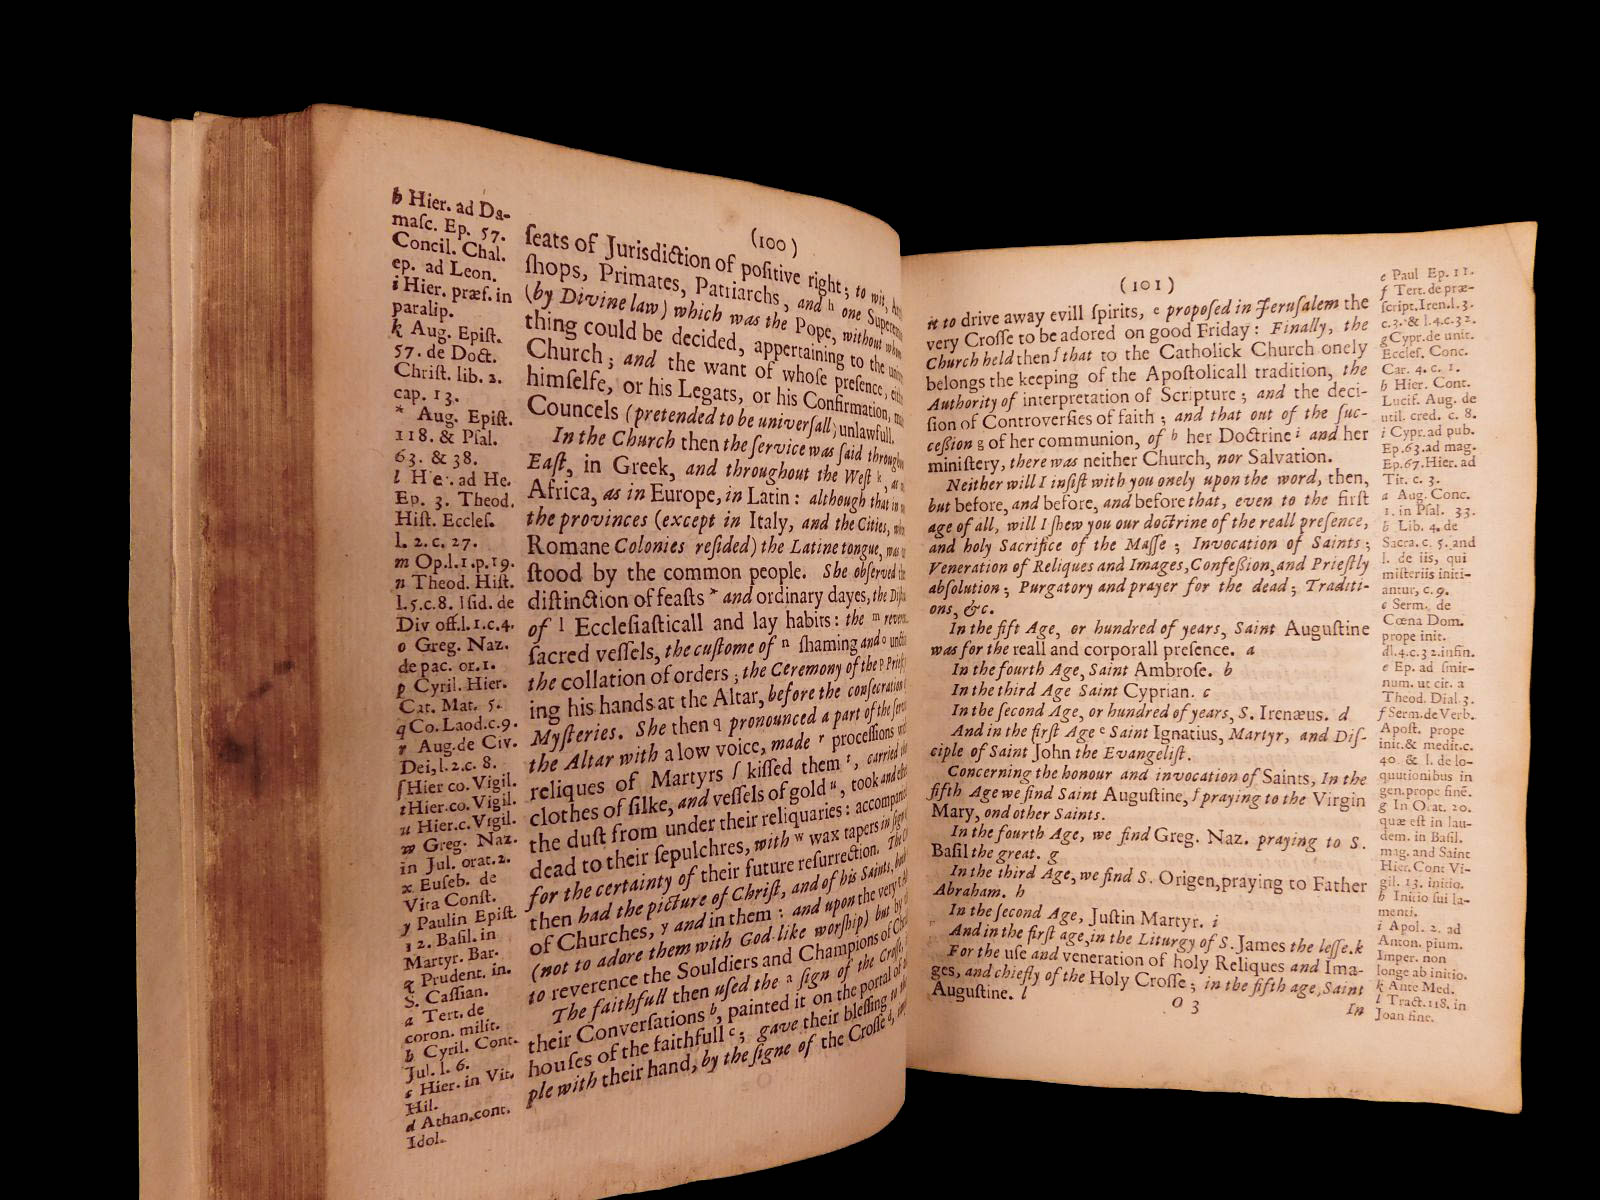 (100)
b Hier. ad Da-
maſc. Ep. 57.
Concil. Chal.
ep. ad Leon.
i Hier. præf. in
paralip.
k Aug. Epiſt.
57. de Doct.
Chriſt. lib. 2.
cap. 13.
* Aug. Epiſt.
118. & Pſal.
63. & 38.
l ad He.
Ep. 3. Theod.
Hiſt. Eccleſ.
l. 2. c. 27.
m Op.l.1.p.19.
n Theod. Hiſt.
l.5.c.8. Iſid. de
Div off.l.1.c.4.
o Greg. Naz.
de pac. or.1.
p Cyril. Hier.
Cat. Mat. 5.
q Co. Laod.c.9.
r Aug.de Civ.
Dei, l.2.c. 8.
ſ Hier co. Vigil.
t Hier.co. Vigil.
u Hier.c. Vigil.
w Greg. Naz.
in Jul. orat.2.
x Euſeb. de
Vita Conſt.
y Paulin Epiſt.
12. Baſil. in
Martyr. Bar.
z Prudent. in.
S. Caſſian.
a Tert. de
coron. milit.
b Cyril. Cont.
Jul. l. 6.
c Hier. in Vit.
Hil.
d Athan.cont.
Idol.
ſeats of Jurisdiction of poſitive right; to wit,
ſhops, Primates, Patriarchs, and h one
(by Divine law) which was the Pope, without
thing could be decided, appertaining to the
Church; and the want of whoſe preſence,
himſelfe, or his Legats, or his Confirmation,
Councels (pretended to be univerſall) unlawfull.
In the Church then the ſervice was ſaid
Eaſt, in Greek, and throughout the Weſt k,
Africa, as in Europe, in Latin: although that in
the provinces (except in Italy, and the Cities,
Romane Colonies reſided) the Latine tongue, was
ſtood by the common people. She obſerved
diſtinction of feaſts * and ordinary dayes, the
of l Eccleſiaſticall and lay habits: the m
ſacred veſſels, the cuſtome of n ſhaming and o
the collation of orders; the Ceremony of the p
ing his hands at the Altar, before the conſecration
Myſteries. She then q pronounced a part of the
the Altar with a low voice, made r proceſſions
reliques of Martyrs ſ kiſſed them t, carried
clothes of ſilke, and veſſels of gold u, took and
the duſt from under their reliquaries:
dead to their ſepulchres, with w wax tapers in
for the certainty of their future reſurrection. The
then had the picture of Chriſt, and of his Saints,
of Churches, y and in them: and upon the very
(not to adore them with God-like worſhip) but by
to reverence the Souldiers and Champions of
The faithfull then uſed the a ſign of the Croſſe,
their Converſations b, painted it on the portal of
houſes of the faithfull c; gave their bleſſing to
ple with their hand, by the ſigne of the Croſſe d,
(101)
it to drive away evill ſpirits, e propoſed in Jeruſalem the
very Croſſe to be adored on good Friday: Finally, the
Church held then f that to the Catholick Church onely
belongs the keeping of the Apoſtolicall tradition, the
Authority of interpretation of Scripture; and the deci-
ſion of Controverſies of faith; and that out of the ſuc-
ceſſion g of her communion, of h her Doctrine i and her
miniſtery, there was neither Church, nor Salvation.
Neither will I inſiſt with you onely upon the word, then,
but before, and before, and before that, even to the firſt
age of all, will I ſhew you our doctrine of the reall preſence,
and holy Sacrifice of the Maſſe; Invocation of Saints;
Veneration of Reliques and Images, Confeſſion, and Prieſtly
abſolution; Purgatory and prayer for the dead; Traditi-
ons, &c.
In the fift Age, or hundred of years, Saint Auguſtine
was for the reall and corporall preſence. a
In the fourth Age, Saint Ambroſe. b
In the third Age Saint Cyprian. c
In the ſecond Age, or hundred of years, S. Irenæus. d
And in the firſt Age e Saint Ignatius, Martyr, and Diſ-
ciple of Saint John the Evangeliſt.
Concerning the honour and invocation of Saints, In the
fifth Age we find Saint Auguſtine, f praying to the Virgin
Mary, and other Saints.
In the fourth Age, we find Greg. Naz. praying to S.
Baſil the great. g
In the third Age, we find S. Origen, praying to Father
Abraham. h
In the ſecond Age, Juſtin Martyr. i
And in the firſt age, in the Liturgy of S. James the leſſe. k
For the uſe and veneration of holy Reliques and Ima-
ges, and chiefly of the Holy Croſſe; in the fifth age, Saint
Auguſtine. l
O 3
In
e Paul Ep. 11.
f Tert. de præ-
ſcript. Iren.l.3.
c.3. & l.4.c.32.
g Cypr. de unit.
Eccleſ. Conc.
Car. 4. c. 1.
h Hier. Cont.
Lucif. Aug. de
util. cred. c. 8.
i Cypr. ad pub.
Ep.63.ad mag.
Ep.67.Hier. ad
Tit. c. 3.
a Aug. Conc.
1. in Pſal. 33.
b Lib. 4. de
Sacra. c. 5. and
l. de iis, qui
miſteriis initi-
antur, c. 9.
c Serm. de
Cœna Dom.
prope init.
d l.4.c.32.infin.
e Ep. ad ſmir-
num. ut cit. a
Theod. Dial.3.
f Serm.de Verb.
Apoſt. prope
init.& medit.c.
40. & l. de lo-
quutionibus in
gen.prope finē.
g In Orat. 20.
quæ eſt in lau-
dem. in Baſil.
mag. and Saint
Hier. Cont Vi-
gil. 13. initio.
h Initio ſui la-
menti.
i Apol. 2. ad
Anton. pium.
Imper. non
longe ab initio.
k Ante Med.
l Tract. 118. in
Joan fine.